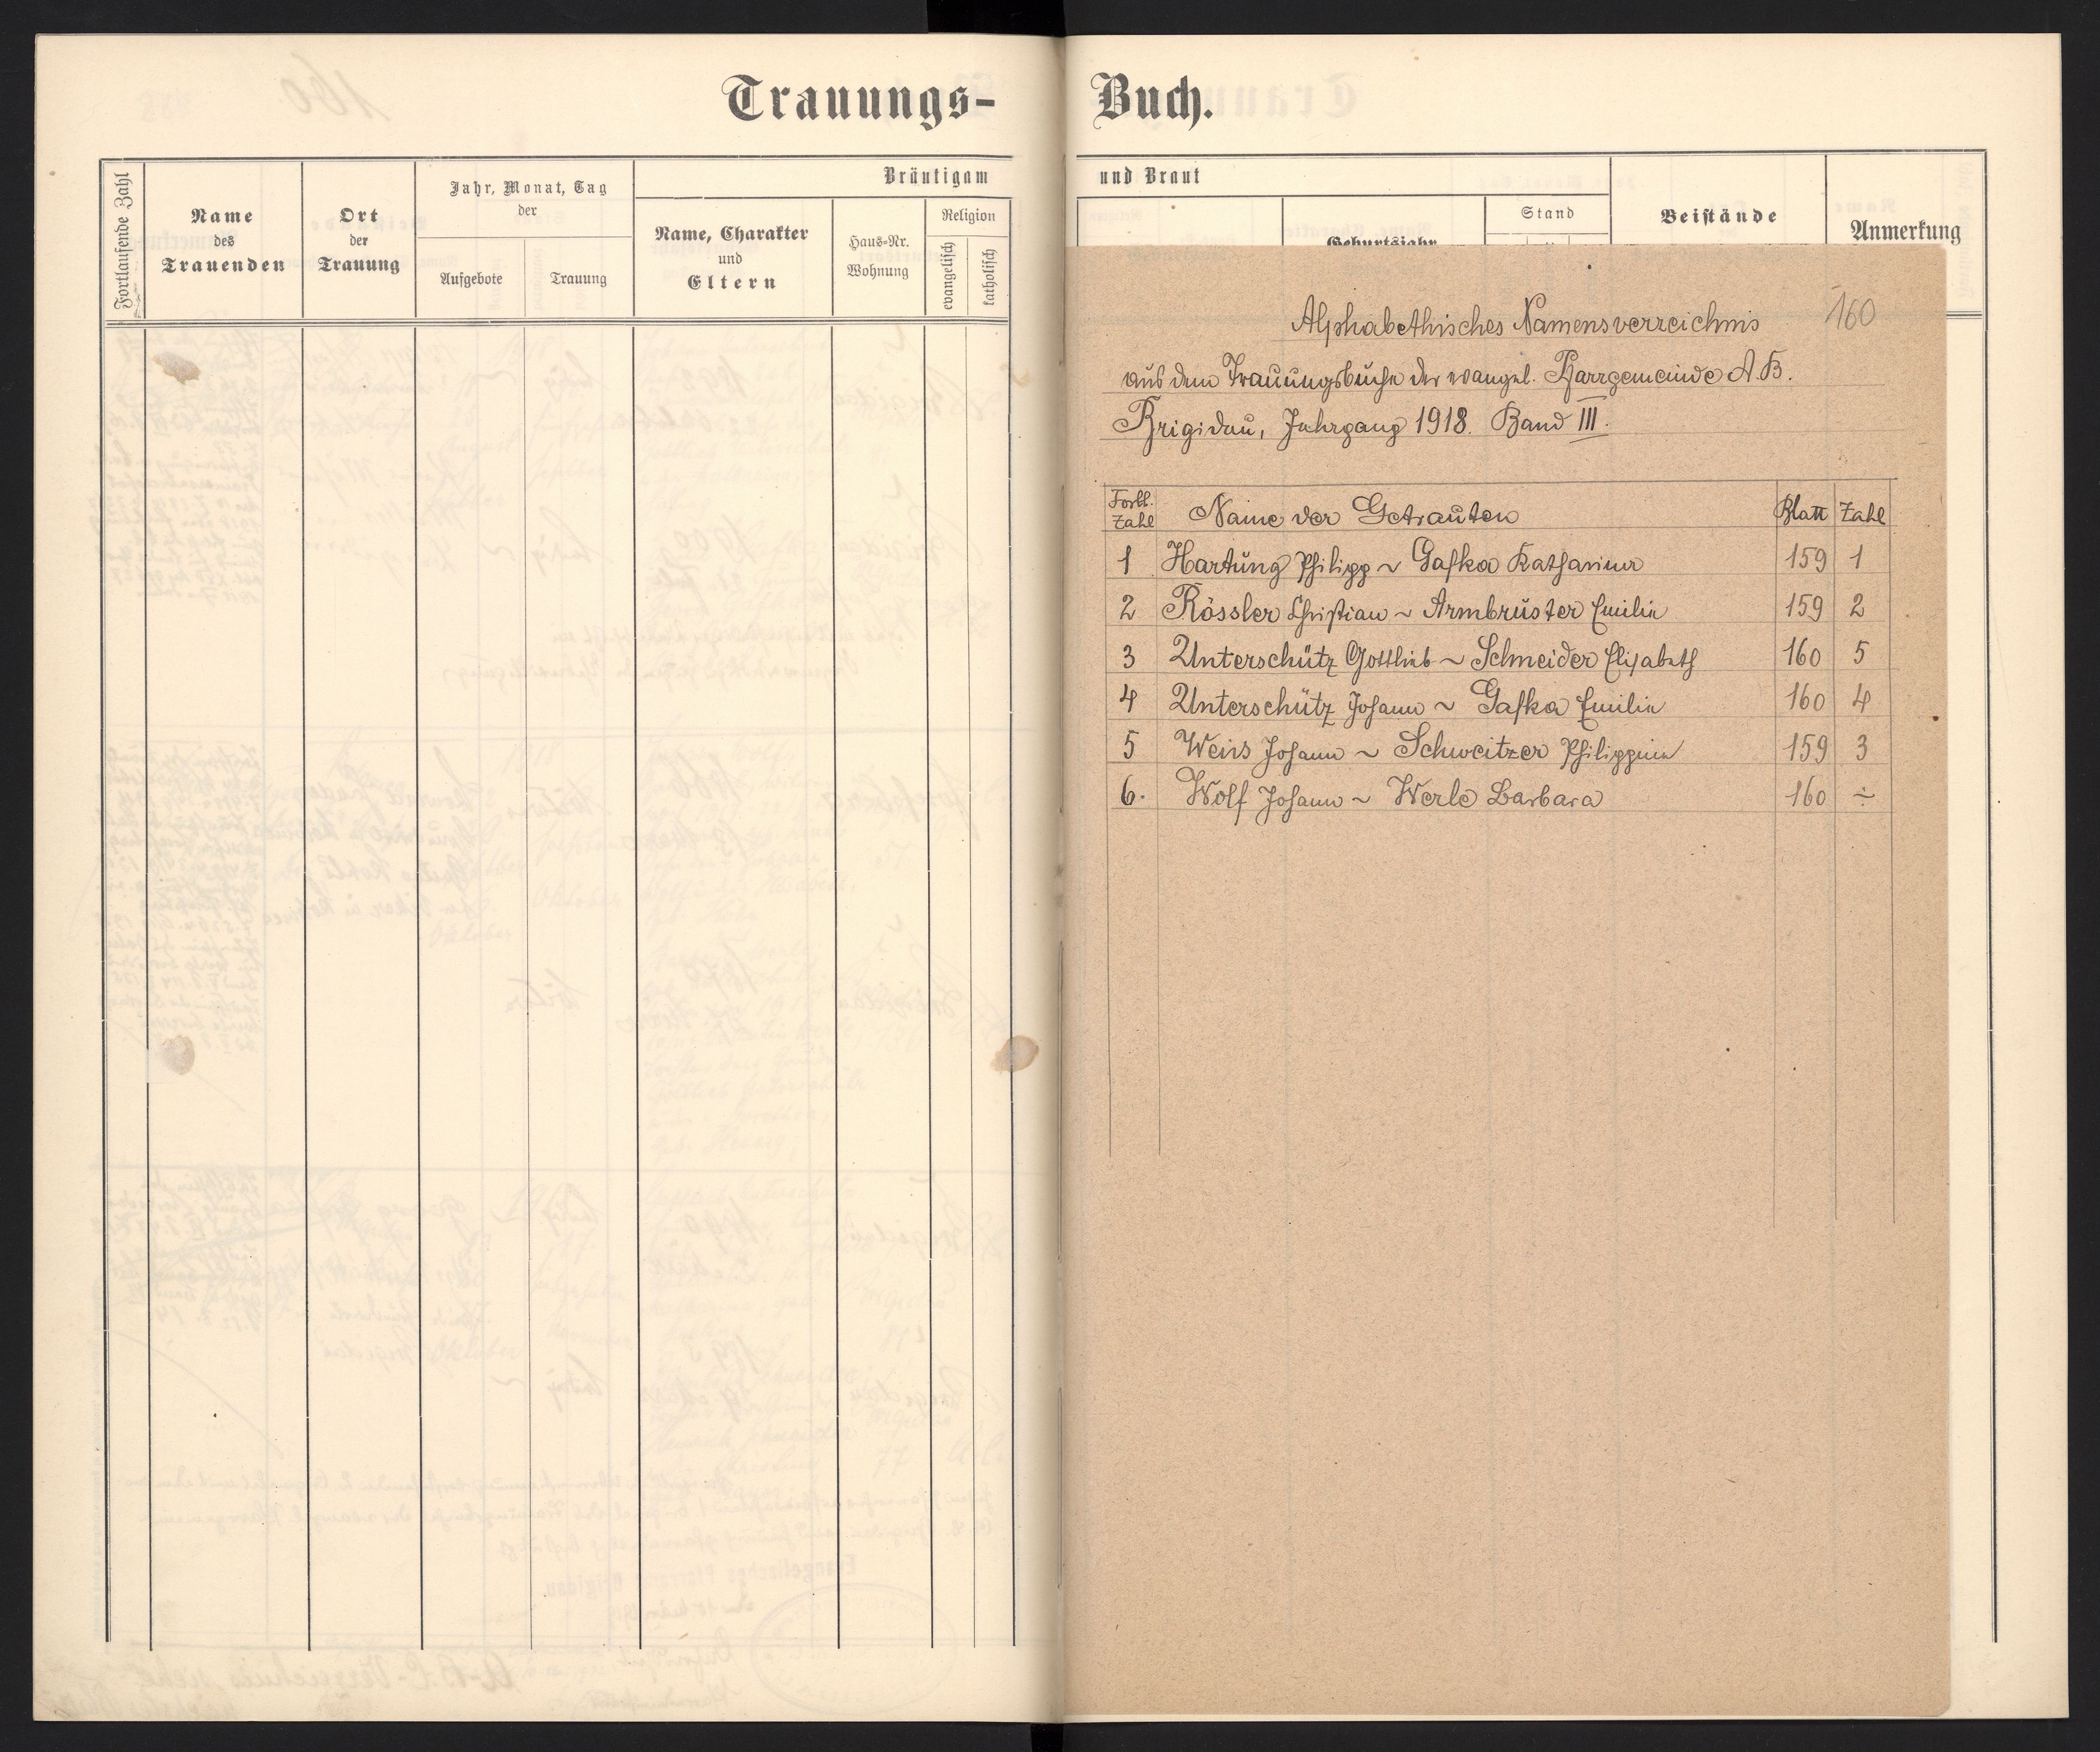 Trauungs-
Buch.
Fortlaufende Zahl
Name
des
Trauenden
Ort
der
Trauung
Jahr, Monat, Tag
der
Aufgebote
Trauung
Bräutigam
Name, Charakter
und
Eltern
Haus-Nr.
Wohnung
Religion
evangelisch
katholisch
und Braut
Geburtsjahr
Stand
Beistände
Anmerkung
Alphabethisches Namensverzeichnis 160
aus dem Trauungsbuche der evangel. Pfarrgemeinde A.B.
Brigidau, Jahrgang 1918. Band III.
Fortl. Zahl Name der Getrauten Blatt Zahl
1 Hartung Philipp ~ Gafka Katharina 159 1
2 Rössler Christian ~ Armbruster Emilie 159 2
3 Unterschütz Gottlieb ~ Schneider Elisabeth 160 5
4 Unterschütz Johann ~ Gafka Emilie 160 4
5 Weiss Johann ~ Schweitzer Philippine 159 3
6. Wolf Johann ~ Werle Barbara 160 ÷